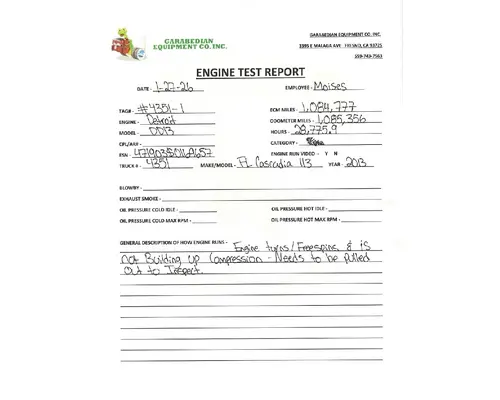 GARABEDIAN
EQUIPMENT CO. INC.
GARABEDIAN EQUIPMENT CO. INC.
3395 E MALAGA AVE FRESNO, CA 93725
559-743-7563
ENGINE TEST REPORT
DATE - 1-27-26 EMPLOYEE - Moises
TAG# - #4351-1 ECM MILES - 1,084,777
ENGINE - Detroit ODOMETER MILES - 1,085,356
MODEL - DD13 HOURS - 28,775.9
CPL/AR# - CATEGORY -
ESN - ENGINE RUN VIDEO - Y N
TRUCK # - 4351 MAKE/MODEL - FL Cascadia 113 YEAR - 2013
BLOWBY -
EXHAUST SMOKE -
OIL PRESSURE COLD IDLE - OIL PRESSURE HOT IDLE -
OIL PRESSURE COLD MAX RPM - OIL PRESSURE HOT MAX RPM -
GENERAL DESCRIPTION OF HOW ENGINE RUNS - Engine turns/Freespins & is
not Building up Compression - Needs to be pulled
out to Inspect.